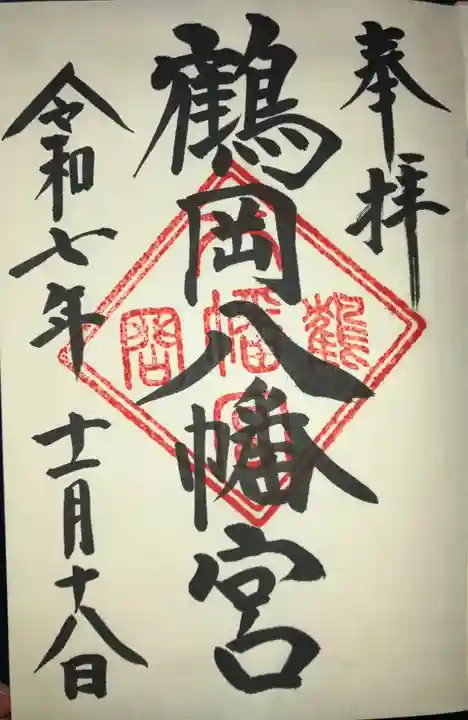 奉拝
鶴岡八幡宮
鶴岡八幡宮
令和七年 十一月十八日